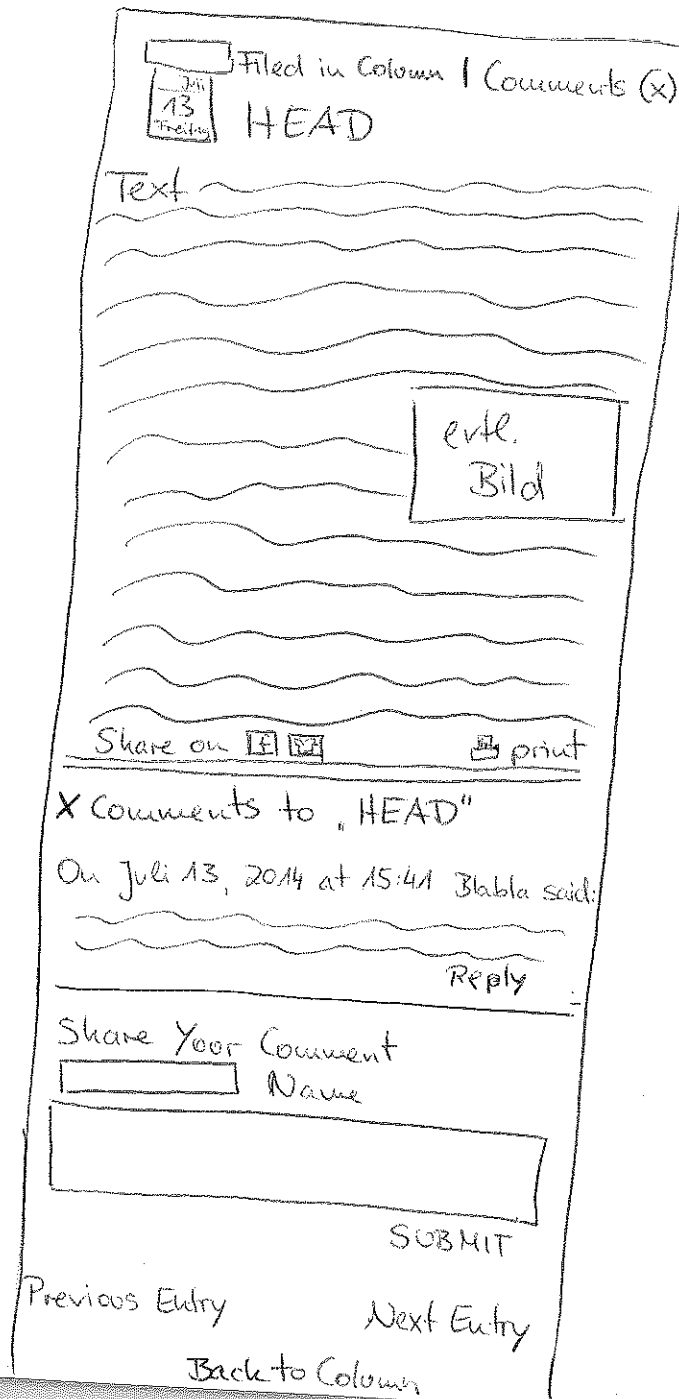 Filed in Column | Comments (x)
Juli
13
Freitag
HEAD
Text
evtl.
Bild
Share on f print
X Comments to „HEAD"
On Juli 13, 2014 at 15:41 Blabla said:
Reply
Share Your Comment
Name
SUBMIT
Previous Entry Next Entry
Back to Column